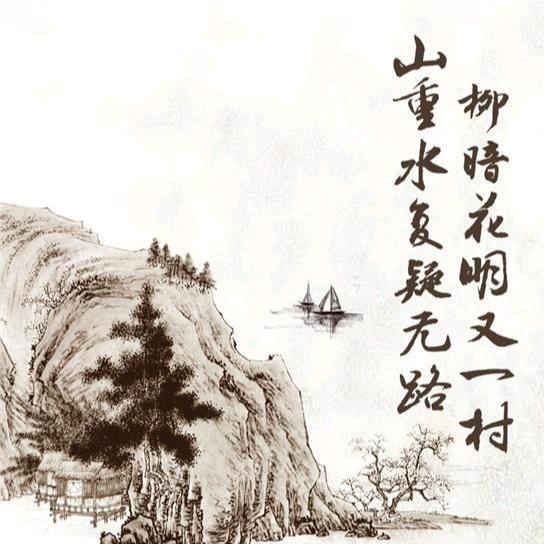 山重水复疑无路
柳暗花明又一村